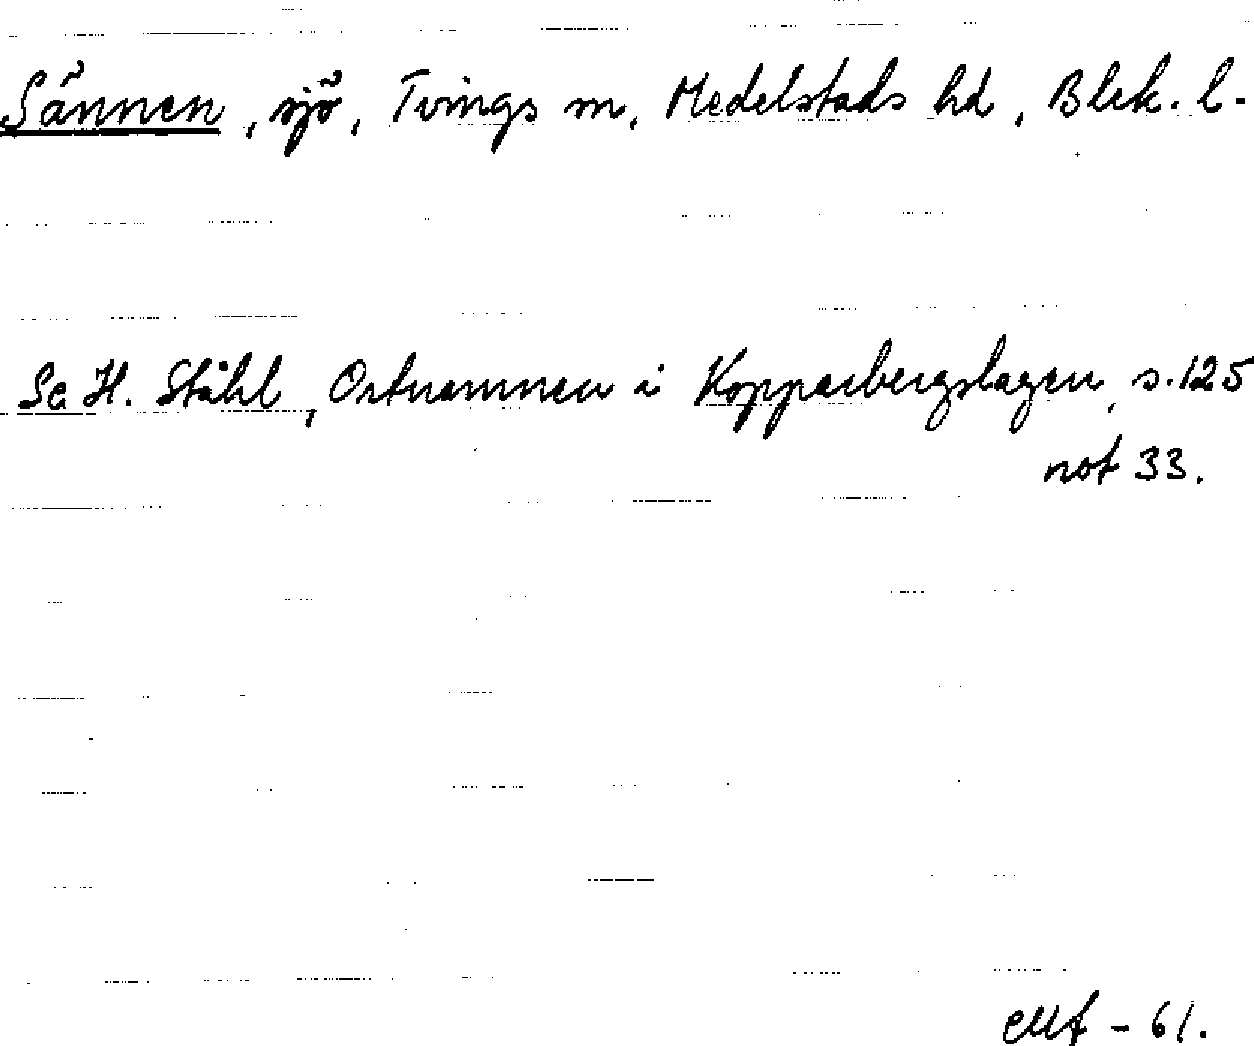 Sännen, sjö, Tvings sn, Medelstads hd, Blek. l.
Se H. Ståhl, Ortnamnen i Kopparbergslagen, s. 125
not 33.
- 61.